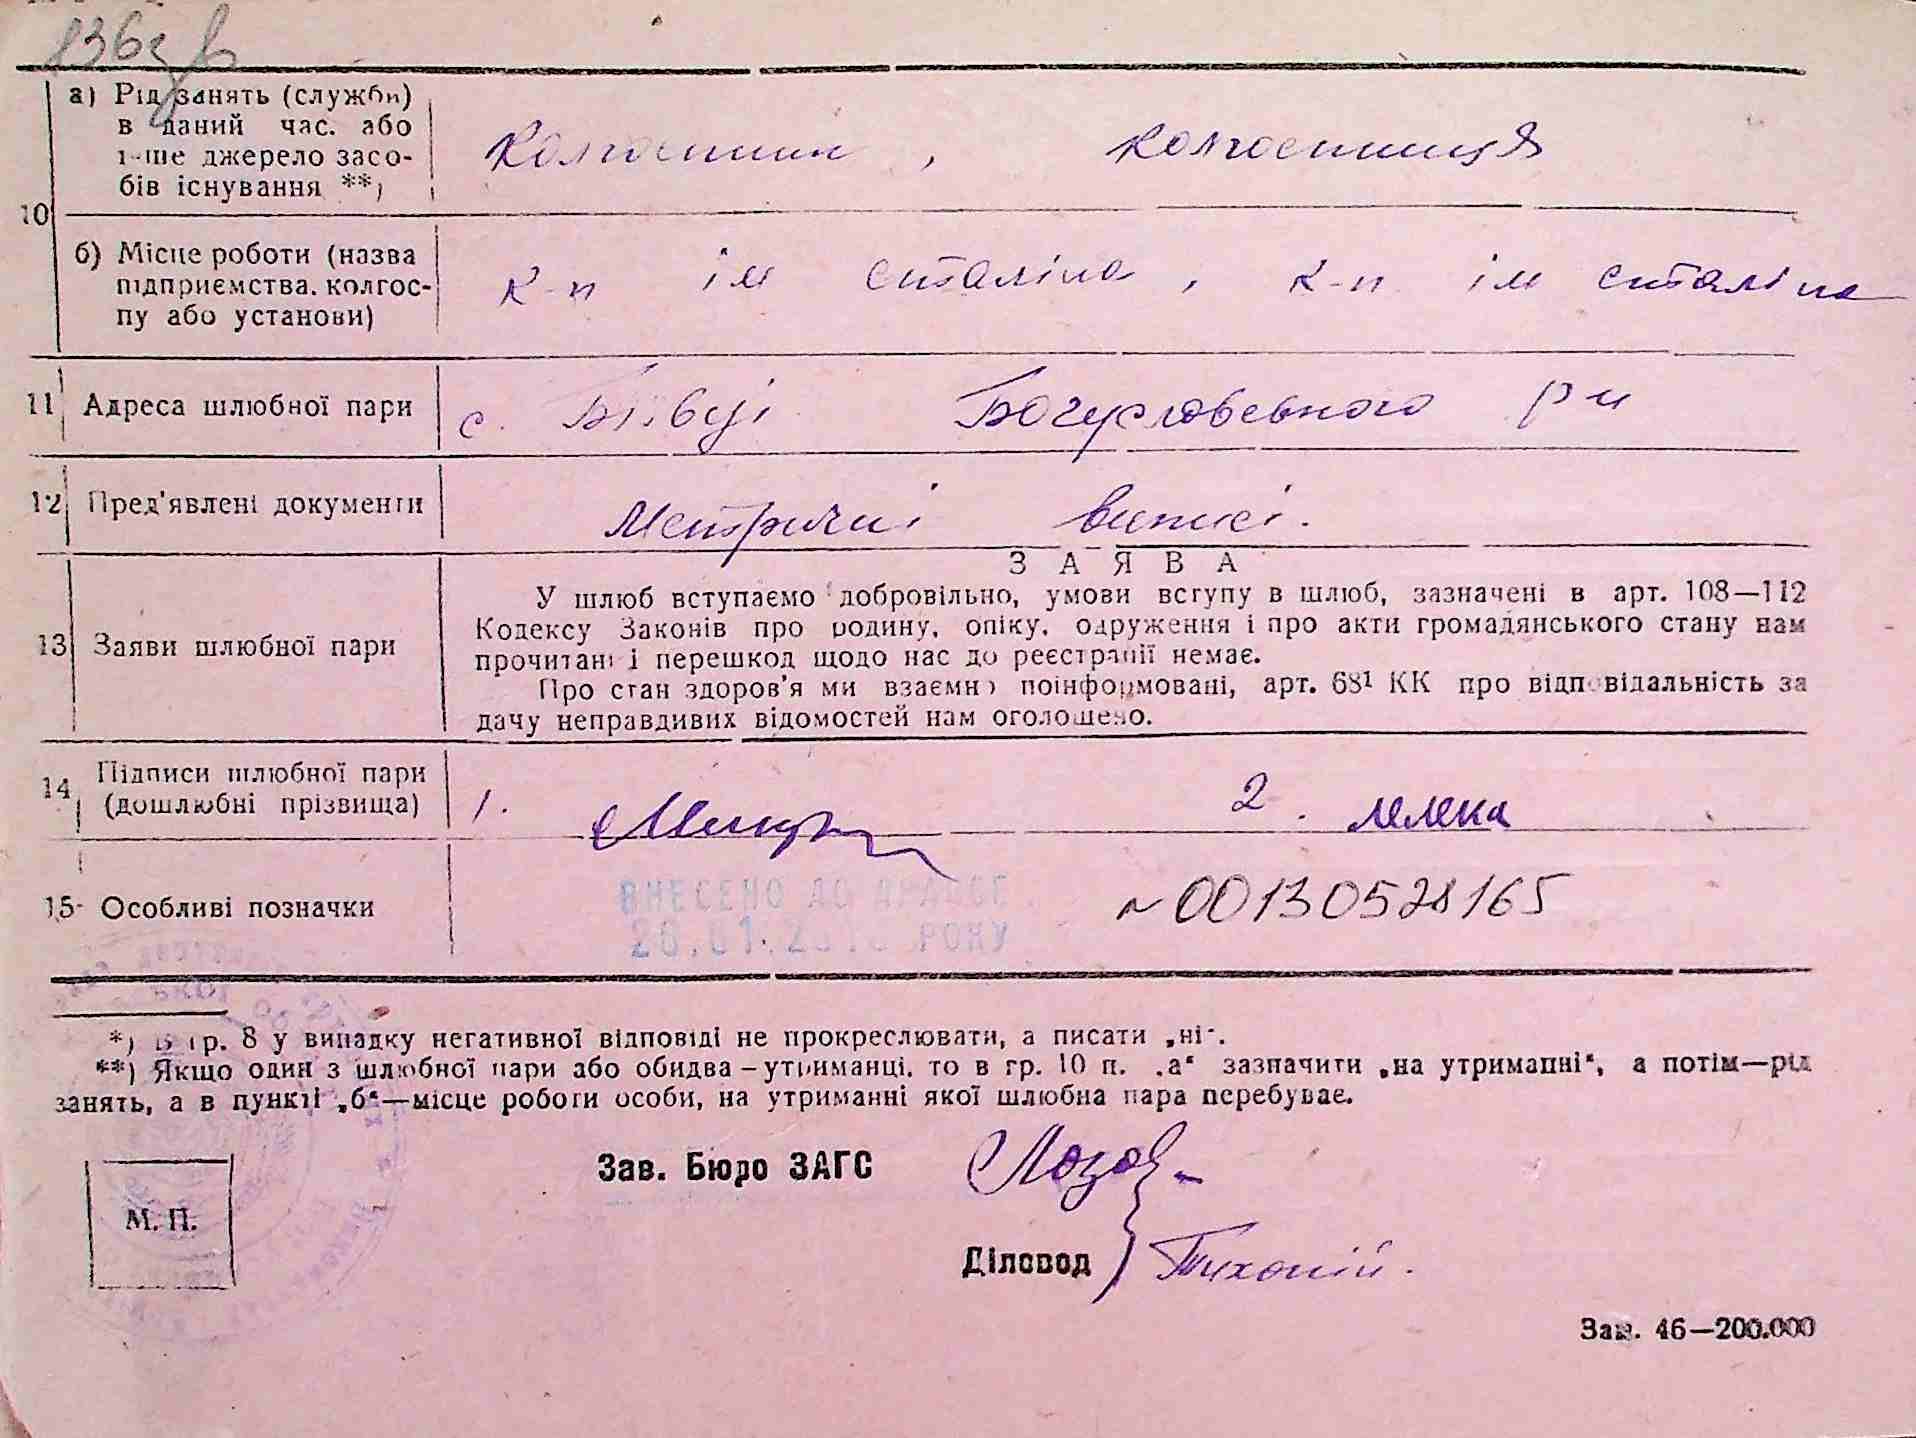 136зв
10 а) Рід занять (служби) в даний час. або інше джерело засобів існування **) Колгоспник, колгоспниця
б) Місце роботи (назва підприємства. колгоспу або установи) к-п ім Сталіна, к-п ім Сталіна
11 Адреса шлюбної пари с. Біївці Богуславського р-н
12 Пред'явлені документи Метричні виписі.
ЗАЯВА
13 Заяви шлюбної пари
У шлюб вступаємо добровільно, умови вступу в шлюб, зазначені в арт. 108—112
Кодексу Законів про родину, опіку, одруження і про акти громадянського стану нам
прочитані і перешкод щодо нас до реєстрації немає.
Про стан здоров'я ми взаємно поінформовані, арт. 68¹ КК про відповідальність за
дачу неправдивих відомостей нам оголошено.
14 Підписи шлюбної пари (дошлюбні прізвища) 1. 2. Лелека
15 Особливі позначки ВНЕСЕНО ДО ДРАЦСГ
РОКУ
~00130528165
*) В гр. 8 у випадку негативної відповіді не прокреслювати, а писати „ні".
**) Якщо один з шлюбної пари або обидва – утриманці, то в гр. 10 п. „а" зазначити „на утриманні", а потім—рід
занять, а в пункті „б"—місце роботи особи, на утриманні якої шлюбна пара перебуває.
Зав. Бюро ЗАГС
М. П.
Діловод Тихоній.
Зам. 46—200.000